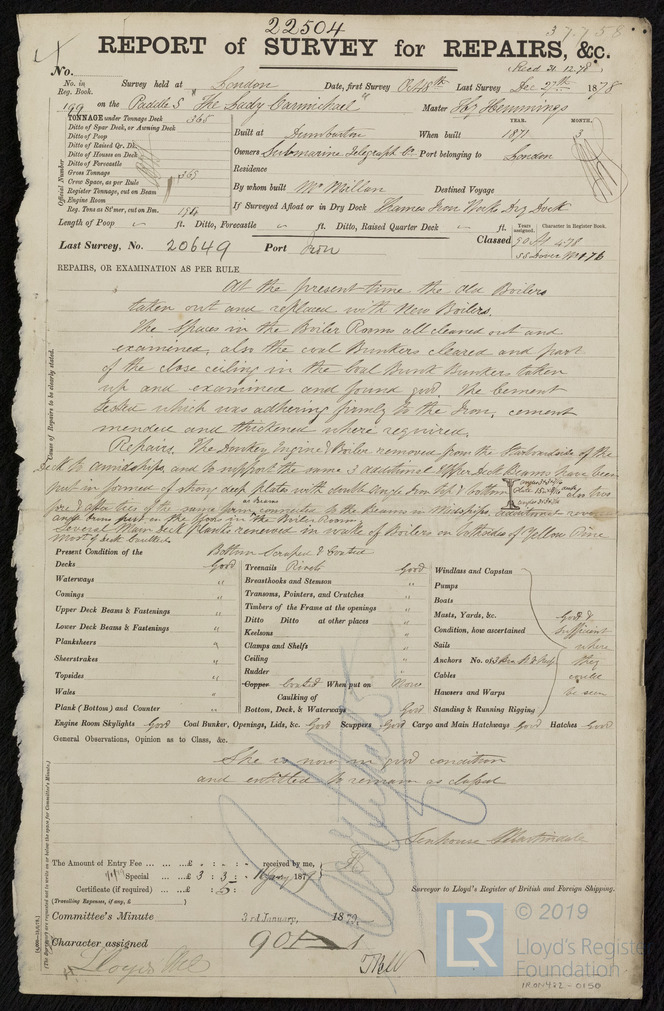 22504
37758
REPORT of SURVEY for REPAIRS, &c.
No.
(Recd 31.12.78)
No. in Reg. Book.
Survey held at London Date, first Survey Oct 18th Last Survey Dec 27th 1878
199 on the Paddle S "The Lady Carmichael" Master Hy Hennings
TONNAGE under Tonnage Deck 365
Ditto of Spar Deck, or Awning Deck
Ditto of Poop
Ditto of Raised Qr. Dk.
Ditto of Houses on Deck
Ditto of Forecastle
Gross Tonnage 365
Crew Space, as per Rule
Register Tonnage, cut on Beam
Engine Room
Reg. Tons as St'mer, cut on Bm.
Official Number
YEAR. MONTH.
Built at Dumbarton When built 1871 3
Owners Submarine Telegraph Co Port belonging to London
Residence
By whom built McMillan Destined Voyage
If Surveyed Afloat or in Dry Dock Thames Iron Works Dry Dock
Length of Poop ft. Ditto, Forecastle ft. Ditto, Raised Quarter Deck ft.
Years assigned. Character in Register Book.
Last Survey, No. 20649 Port Lon Classed 90 A1 4.78
REPAIRS, OR EXAMINATION AS PER RULE
At the present time the old Boilers
taken out and replaced with New Boilers.
The Spaces in the Boiler Rooms all cleaned out and
examined, also the coal Bunkers cleared and part
of the close ceiling in the Coal Bunk Bunkers taken
up and examined and found good. The Cement
tested which was adhering firmly to the Iron, cement
mended and thickened where required.
Repairs. The Donkey Engine & Boiler removed from the Starboard side of the
Deck to amidships and to support the same 3 additional Upper Deck Beams have been
put in formed of strong deep plates with double angle Iron top & bottom also two
fore & after ties of the same form connected to the Beams in Midships, additional reverse
angle Irons put on the floors in the Boiler Room
Several Main Deck Planks renewed in wake of Boilers on both sides of Yellow Pine
Most of deck Caulked
Cause of Repairs to be clearly stated.
Present Condition of the Bottom Scraped & Coated
Decks Good
Waterways "
Comings "
Upper Deck Beams & Fastenings "
Lower Deck Beams & Fastenings "
Planksheers "
Sheerstrakes "
Topsides "
Wales "
Plank (Bottom) and Counter "
Treenails Rivets Good
Breasthooks and Stemson "
Transoms, Pointers, and Crutches "
Timbers of the Frame at the openings "
Ditto Ditto at other places "
Keelsons "
Clamps and Shelfs "
Ceiling "
Rudder "
Copper Coated When put on Now
Caulking of
Bottom, Deck, & Waterways Good
Windlass and Capstan
Pumps
Boats
Masts, Yards, &c.
Condition, how ascertained
Sails
Anchors No. of
Cables
Hawsers and Warps
Standing & Running Rigging
Good & sufficient where they could be seen
Engine Room Skylights Good Coal Bunker, Openings, Lids, &c. Good Scuppers Good Cargo and Main Hatchways Good Hatches Good
General Observations, Opinion as to Class, &c.
She is now in good condition
and entitled to remain as classed
The Amount of Entry Fee ... ... ... £ : - : - received by me,
Special ... ... £ 3 : 3 : - 1 Jany 1879
Certificate (if required) ... £ : 5 :
(Travelling Expenses, if any, £ )
Surveyor to Lloyd's Register of British and Foreign Shipping.
Committee's Minute 3rd January, 1879
Character assigned 90 A 1
Lloyds
(The Surveyors are requested not to write on or below the space for Committee's Minute.)
LR
© 2019
Lloyd's Register
Foundation
IRON422-0150